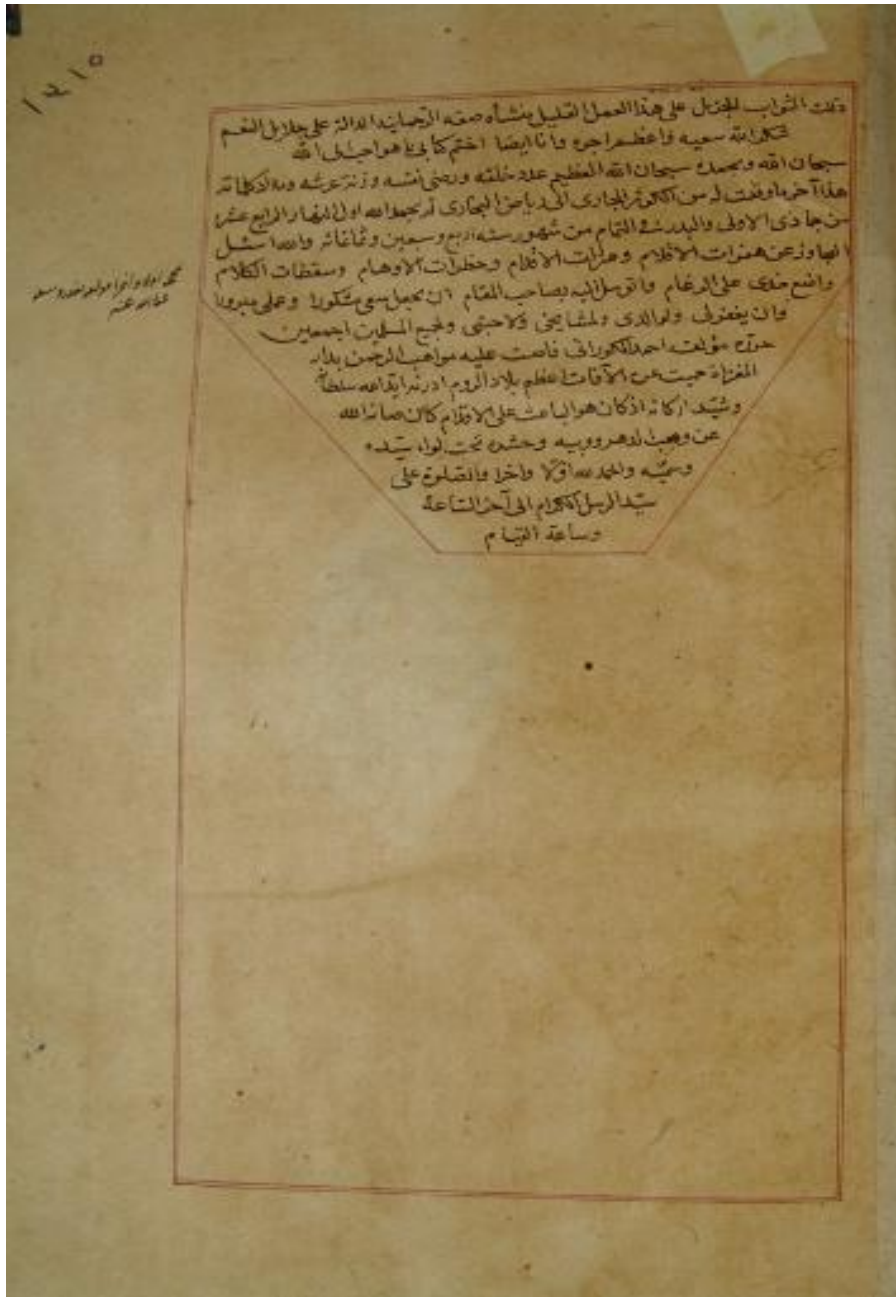 ١٢١٥
ذلك الثواب الجزيل على هذا العمل القليل منشأه صفة الرحمانية الدالة على جلايل النعم
شكر الله سعيه واعظم اجره وانا ايضا اختم كتابي بما هو احب الى الله
سبحان الله وبحمده سبحان الله العظيم عدد خلقه ورضى نفسه وزنة عرشه ومداد كلماته
هذا آخر ما وفقت له من الكوثر الجارى الى رياض البخارى تم بحمد الله اول النهار الرابع عشر
من جماذى الاولى والبدر فى التمام من شهور سنه اربع وسبعين وثمانمائه والله اسئل
التجاوز عن همزات الاقلام وعثرات الاقدام وخطرات الاوهام وسقطات الكلام
واضع خدى على الرغام واتوسل اليه بصاحب المقام ان يجعل سعى مشكورا وعملى مبرورا
وان يغفر لى ولوالدى ولمشايخى ولاحبتى ولجميع المسلمين اجمعين
حرره مؤلفه احمد الكورانى فاضت عليه مواهب الرحمن بدار
الغزاة حميت عن الآفات اعظم بلاد الروم ادرنه ايد الله سلطانه
وشيد اركانه اذ كان هو الباعث على الاقدام كان صانه الله
عن الدهر وريبه وحشده تحت لواء سيده
وسميه والحمد لله اولا واخرا والصلوة على
سيد الرسل الكرام الى آخر الساعة
وساعة القيام